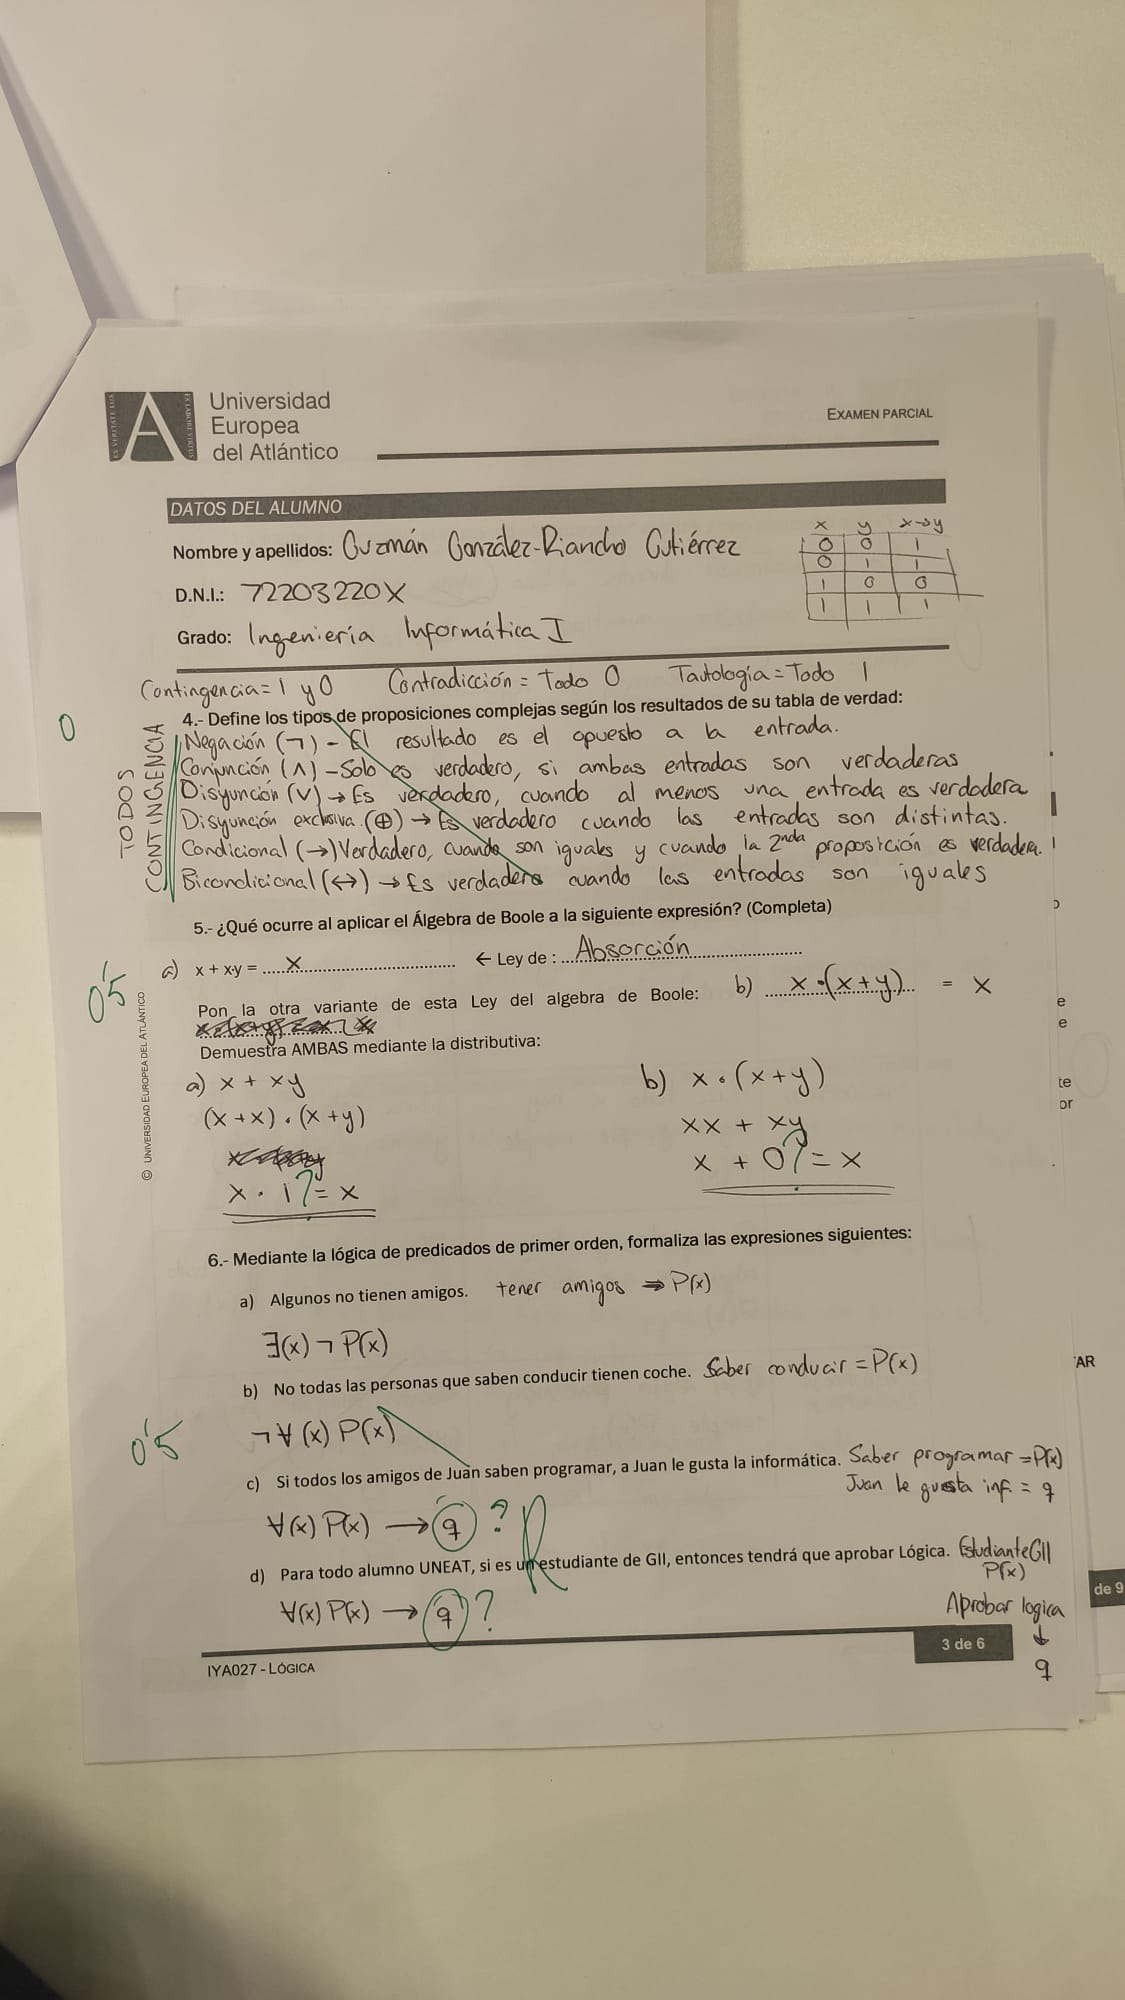 Universidad
Europea
del Atlántico
EXAMEN PARCIAL
DATOS DEL ALUMNO
Nombre y apellidos: Guzmán González-Riancho Gutiérrez
D.N.I.: 72203220X
Grado: Ingeniería Informática I
x y x→y
0 0 1
0 1 1
1 0 0
1 1 1
Contingencia = 1 y 0 Contradicción = Todo 0 Tautología = Todo 1
0
4.- Define los tipos de proposiciones complejas según los resultados de su tabla de verdad:
TODOS
CONTINGENCIA
Negación (¬) - El resultado es el opuesto a la entrada.
Conjunción (∧) - Solo es verdadero, si ambas entradas son verdaderas
Disyunción (∨) → Es verdadero, cuando al menos una entrada es verdadera
Disyunción exclusiva (⊕) → Es verdadero cuando las entradas son distintas.
Condicional (→) Verdadero, cuando son iguales y cuando la 2nda proposición es verdadera.
Bicondicional (↔) → Es verdadero cuando las entradas son iguales
5.- ¿Qué ocurre al aplicar el Álgebra de Boole a la siguiente expresión? (Completa)
0'5
a) x + x·y = ..... x ..... ← Ley de : ... Absorción .....
Pon la otra variante de esta Ley del algebra de Boole: b) x·(x+y) = x
Demuestra AMBAS mediante la distributiva:
a) x + xy
(x+x)·(x+y)
x · 1 ? = x
b) x·(x+y)
xx + xy
x + 0 ? = x
© UNIVERSIDAD EUROPEA DEL ATLÁNTICO
6.- Mediante la lógica de predicados de primer orden, formaliza las expresiones siguientes:
a) Algunos no tienen amigos. tener amigos ⇒ P(x)
∃(x) ¬ P(x)
b) No todas las personas que saben conducir tienen coche. Saber conducir = P(x)
0'5
¬∀(x) P(x)
c) Si todos los amigos de Juan saben programar, a Juan le gusta la informática. Saber programar = P(x)
Juan le gusta inf. = q
∀(x) P(x) → q ?
d) Para todo alumno UNEAT, si es un estudiante de GII, entonces tendrá que aprobar Lógica. Estudiante GII
P(x)
∀(x) P(x) → q ?
Aprobar logica
↓
q
3 de 6
IYA027 - LÓGICA
e
e
te
or
AR
de 9